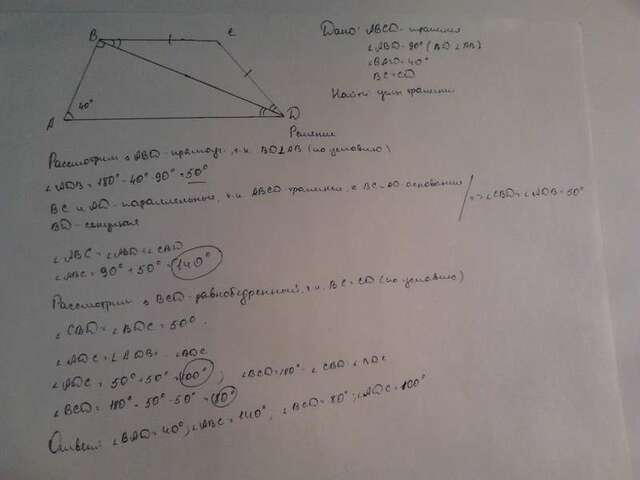 B
C
A
40°
D
Дано: ABCD - трапеция
∠ABD = 90° (BD ⊥ AB)
∠BAD = 40°
BC = CD
Найти: углы трапеции
Решение
Рассмотрим △ ABD - прямоуг., т.к. BD⊥AB (по условию)
∠ADB = 180° - 40° - 90° = 50°
BC и AD - параллельные, т.к. ABCD - трапеция, с BC и AD основания
BD - секущая
=> ∠CBD = ∠ADB = 50°
∠ABC = ∠ABD + ∠CBD
∠ABC = 90° + 50° = 140°
Рассмотрим △ BCD - равнобедренный, т.к. BC = CD (по условию)
∠CBD = ∠BDC = 50°.
∠ADC = ∠ADB + ∠BDC
∠ADC = 50° + 50° = 100° ; ∠BCD = 180° - ∠CBD - ∠BDC
∠BCD = 180° - 50° - 50° = 80°
Ответ: ∠BAD = 40°; ∠ABC = 140°; ∠BCD = 80°; ∠ADC = 100°